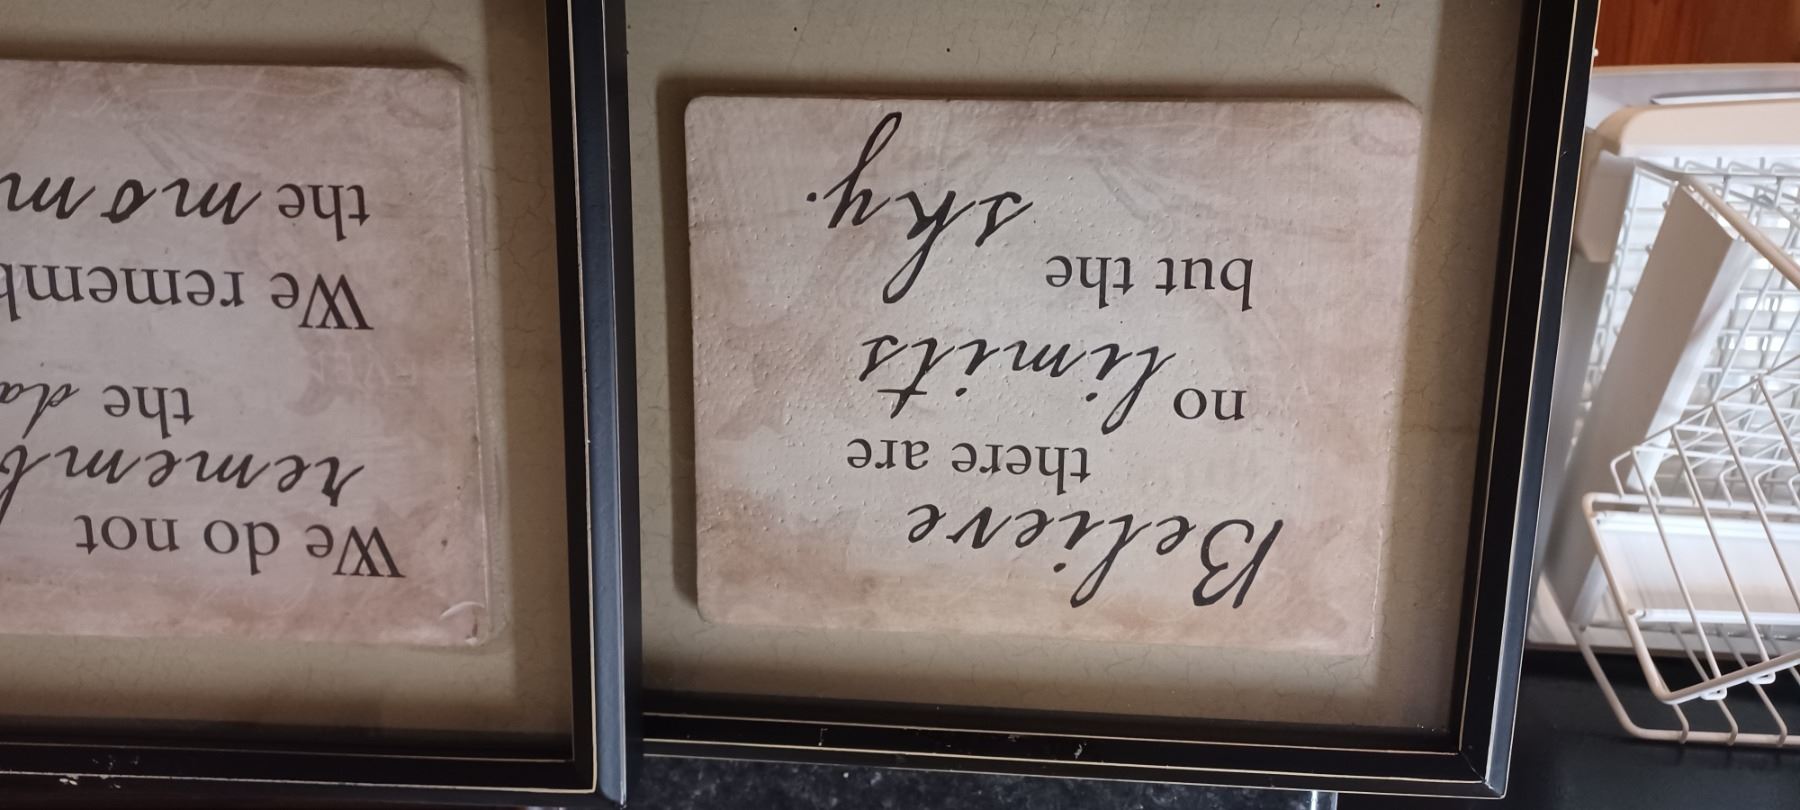 Believe
there are
no limits
but the
sky.
We do not
rememb
the da
We rememb
the mom